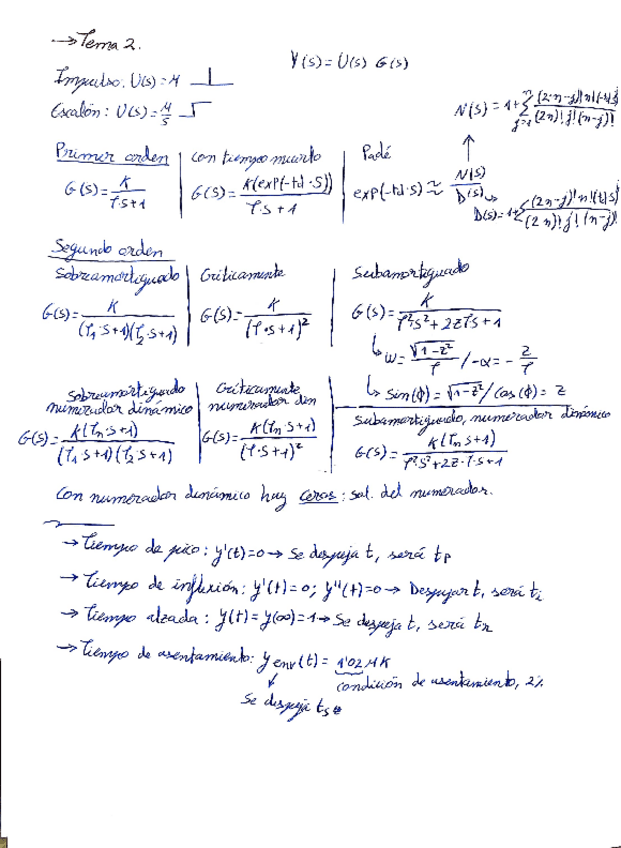 → Tema 2.
Y(s) = U(s) G(s)
Impulso: U(s) = M
Escalón: U(s) = M/s
N(s) = 1+ Σ_{j=1}^{n} (2·n-j)! n! (-td s)^j / (2n)! j! (n-j)!
Primer orden | con tiempo muerto | Padé
G(s) = K / τ·s+1 | G(s) = K(exp(-td·s)) / τ·s+1 | exp(-td·s) ≈ N(s) / D(s)
D(s) = 1+ Σ (2n-j)! n! (td s)^j / (2n)! j! (n-j)!
Segundo orden
Sobreamortiguado | Críticamente | Subamortiguado
G(s) = K / (τ1·s+1)(τ2·s+1) | G(s) = K / (τ·s+1)² | G(s) = K / τ²s²+2zτs+1
ω = √1-z² / τ / -α = - z/τ
sin(ϕ) = √1-z² / cos(ϕ) = z
Sobreamortiguado numerador dinámico | Críticamente numerador din | Subamortiguado, numerador dinámico
G(s) = K(τn·s+1) / (τ1·s+1)(τ2·s+1) | G(s) = K(τn·s+1) / (τ·s+1)² | G(s) = K(τn s+1) / τ²s²+2z·τ·s+1
Con numerador dinámico hay ceros: sol. del numerador.
→ Tiempo de pico: y'(t)=0 → Se despeja t, será tp
→ Tiempo de inflexión: y'(t)=0; y''(t)=0 → Despejar t, será ti
→ Tiempo alzada: y(t) = y(∞) = 1 → Se despeja t, será tr
→ Tiempo de asentamiento: y env(t) = 1'02 M K
condición de asentamiento, 2%
Se despeja ts